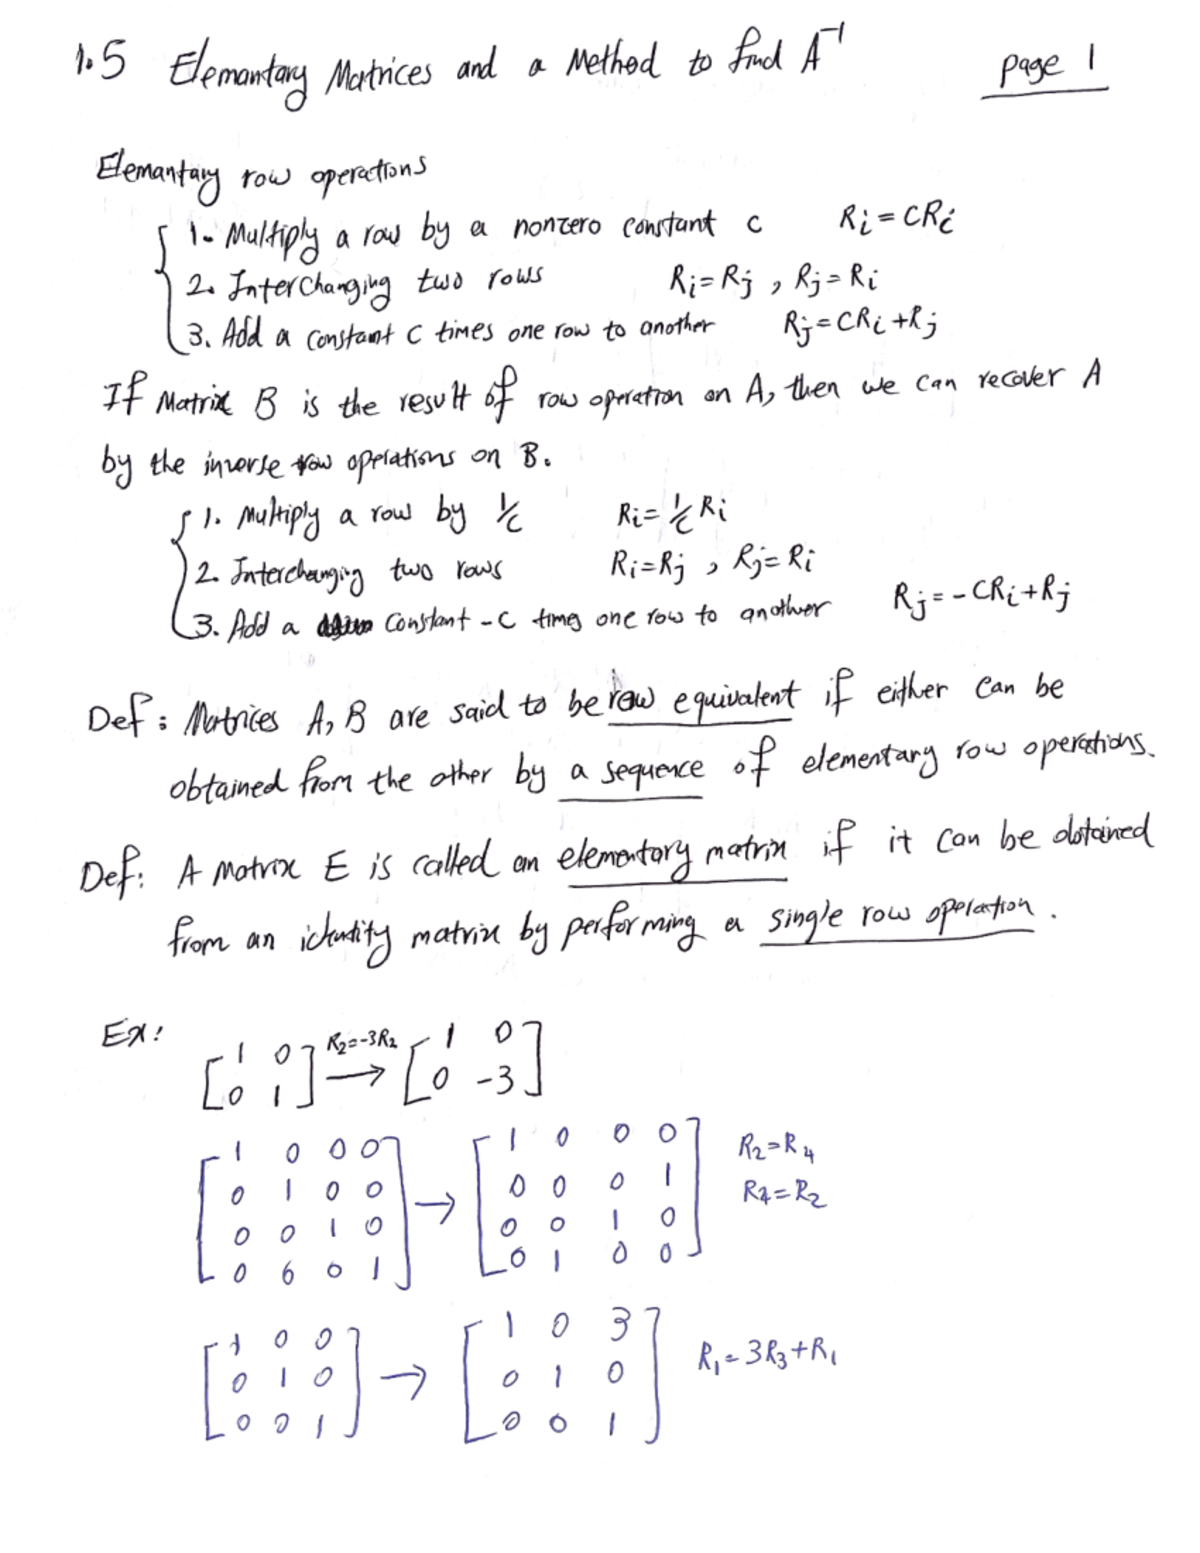 1.5 Elemantary Matrices and a Method to find A⁻¹ page 1
Elemantary row operations
1. Multiply a row by a nonzero constant c Ri = CRi
2. Interchanging two rows Ri = Rj , Rj = Ri
3. Add a constant c times one row to another Rj = CRi + Rj
If Matrix B is the result of row operation on A, then we can recover A
by the inverse row operations on B.
1. Multiply a row by 1/c Ri = 1/c Ri
2. Interchanging two rows Ri = Rj , Rj = Ri
3. Add a constant -c times one row to another Rj = -CRi + Rj
Def: Matrices A, B are said to be row equivalent if either can be
obtained from the other by a sequence of elementary row operations.
Def: A matrix E is called an elementary matrix if it can be obtained
from an identity matrix by performing a single row operation.
Ex:
R2=-3R2
[1 0 → [1 0]
0 1] 0 -3]
[1 0 0 0 → [1 0 0 0] R2=R4
0 1 0 0 0 0 0 1 R4=R2
0 0 1 0 0 0 1 0
0 0 0 1] 0 1 0 0]
[1 0 0 → [1 0 3 R1 = 3R3+R1
0 1 0 0 1 0
0 0 1] 0 0 1]